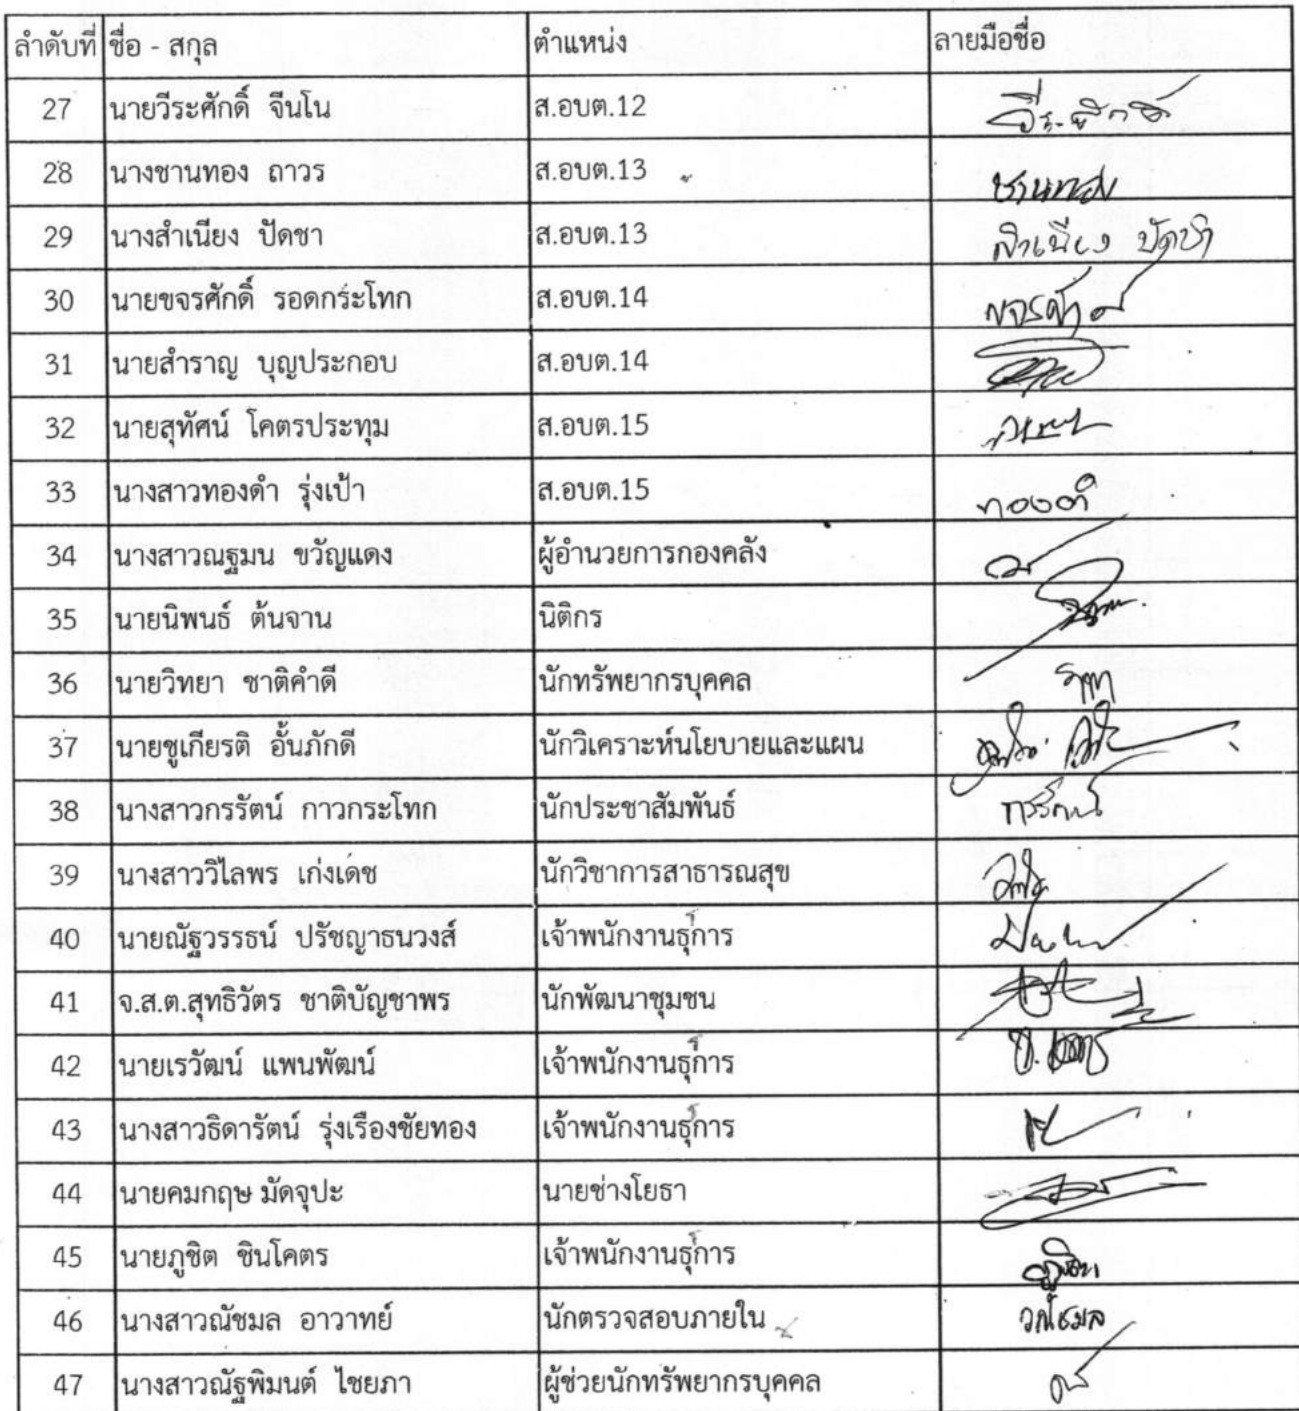 ลำดับที่ ชื่อ - สกุล ตำแหน่ง ลายมือชื่อ
27 นายวีระศักดิ์ จีนโน ส.อบต.12 วีระศักดิ์
28 นางชานทอง ถาวร ส.อบต.13 ชานทอง
29 นางสำเนียง ปัดชา ส.อบต.13 สำเนียง ปัดชา
30 นายขจรศักดิ์ รอดกระโทก ส.อบต.14
31 นายสำราญ บุญประกอบ ส.อบต.14
32 นายสุทัศน์ โคตรประทุม ส.อบต.15
33 นางสาวทองดำ รุ่งเป้า ส.อบต.15 ทองดำ
34 นางสาวณฐมน ขวัญแดง ผู้อำนวยการกองคลัง
35 นายนิพนธ์ ต้นจาน นิติกร
36 นายวิทยา ชาติคำดี นักทรัพยากรบุคคล
37 นายชูเกียรติ อั้นภักดี นักวิเคราะห์นโยบายและแผน
38 นางสาวกรรัตน์ กาวกระโทก นักประชาสัมพันธ์ กรรัตน์
39 นางสาววิไลพร เก่งเดช นักวิชาการสาธารณสุข
40 นายณัฐวรรธน์ ปรัชญาธนวงส์ เจ้าพนักงานธุการ
41 จ.ส.ต.สุทธิวัตร ชาติบัญชาพร นักพัฒนาชุมชน
42 นายเรวัฒน์ แพนพัฒน์ เจ้าพนักงานธุการ
43 นางสาวธิดารัตน์ รุ่งเรืองชัยทอง เจ้าพนักงานธุการ
44 นายคมกฤษ มัดจุปะ นายช่างโยธา
45 นายภูชิต ชินโคตร เจ้าพนักงานธุการ
46 นางสาวณัชมล อาวาทย์ นักตรวจสอบภายใน
47 นางสาวณัฐพิมนต์ ไชยภา ผู้ช่วยนักทรัพยากรบุคคล